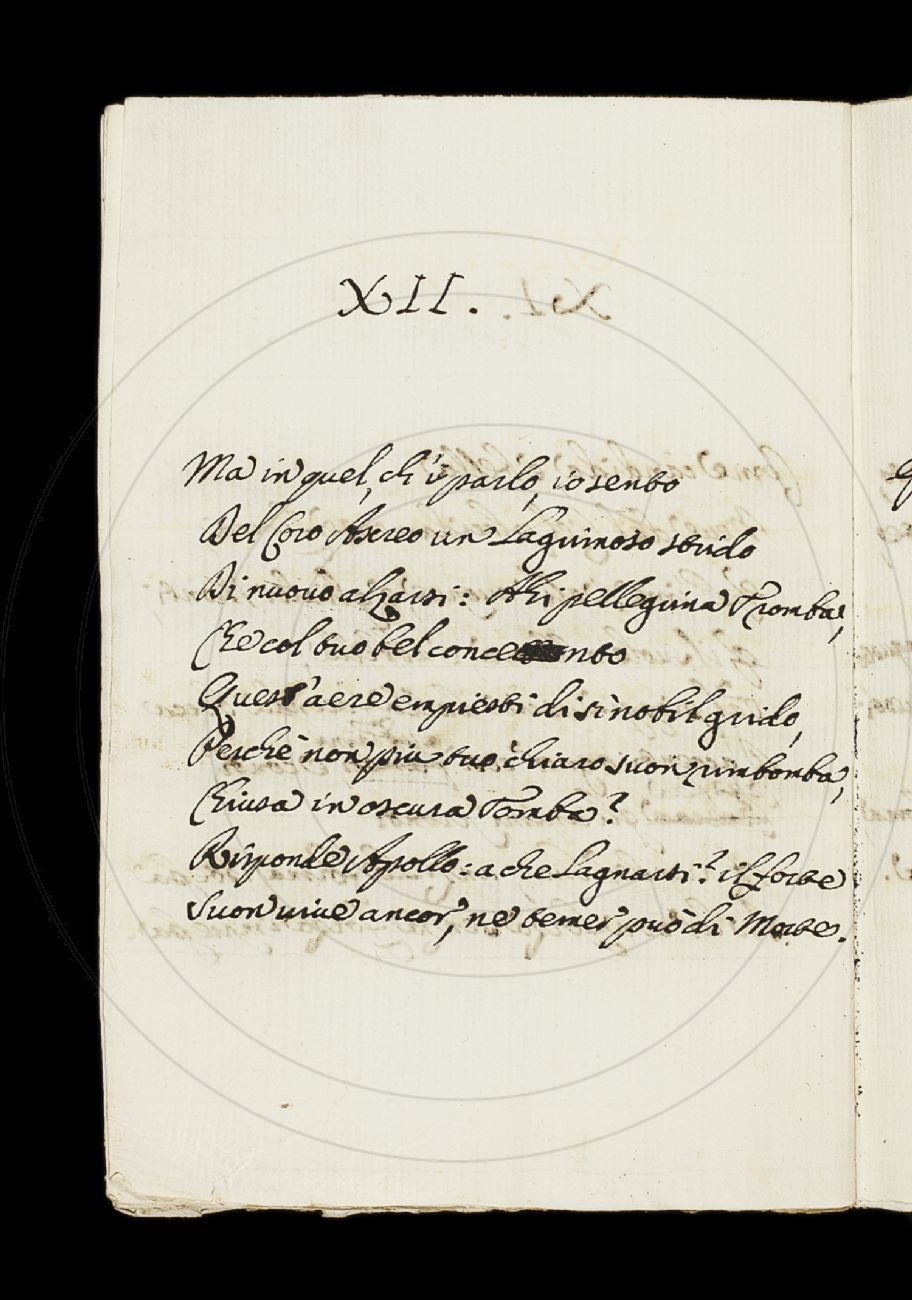 XII.
Ma in quel, ch'i' parlo, io sento
Del Coro Ascreo un Lagrimoso strido
Di nuovo alzarsi: Ahi pellegrina Tromba,
Che col tuo bel concento
Quest'aere empiesti di sì nobil grido,
Perchè non più tuo chiaro suon rimbomba,
Chiusa in oscura Tomba?
Risponde Apollo: a che Lagnarsi? il forte
Suon vive ancor, nè temer può di Morte.